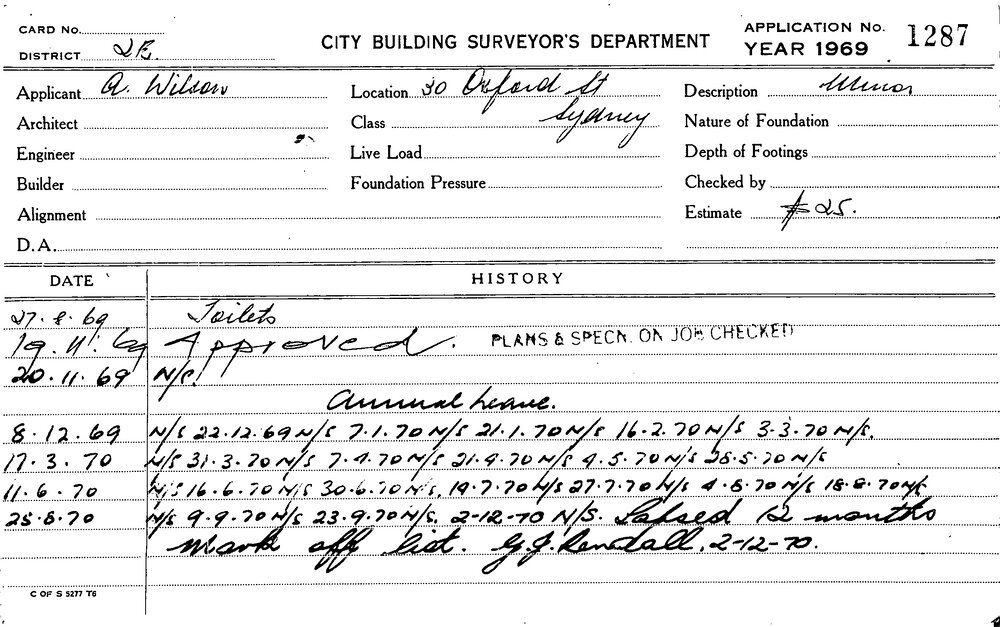 CARD No.
DISTRICT 2E.
CITY BUILDING SURVEYOR'S DEPARTMENT
APPLICATION No. 1287
YEAR 1969
Applicant A. Wilson
Location 30 Oxford St Sydney
Description Minor
Architect
Class
Nature of Foundation
Engineer
Live Load
Depth of Footings
Builder
Foundation Pressure
Checked by
Alignment
Estimate $25.
D.A.
DATE HISTORY
27.8.69 Toilets
19.11.69 Approved. PLANS & SPECN. ON JOB CHECKED
20.11.69 N/S.
Annual Leave.
8.12.69 N/S 22.12.69 N/S 7.1.70 N/S 21.1.70 N/S 16.2.70 N/S 3.3.70 N/S.
17.3.70 N/S 31.3.70 N/S 7.4.70 N/S 21.4.70 N/S 4.5.70 N/S 28.5.70 N/S
11.6.70 N/S 16.6.70 N/S 30.6.70 N/S. 14.7.70 N/S 27.7.70 N/S 4.8.70 N/S 18.8.70 N/S
25.8.70 N/S 9.9.70 N/S 23.9.70 N/S. 2-12-70 N/S. Lapsed 12 months
Mark off list. G.J. Rendall. 2-12-70.
C OF S 5277 T6